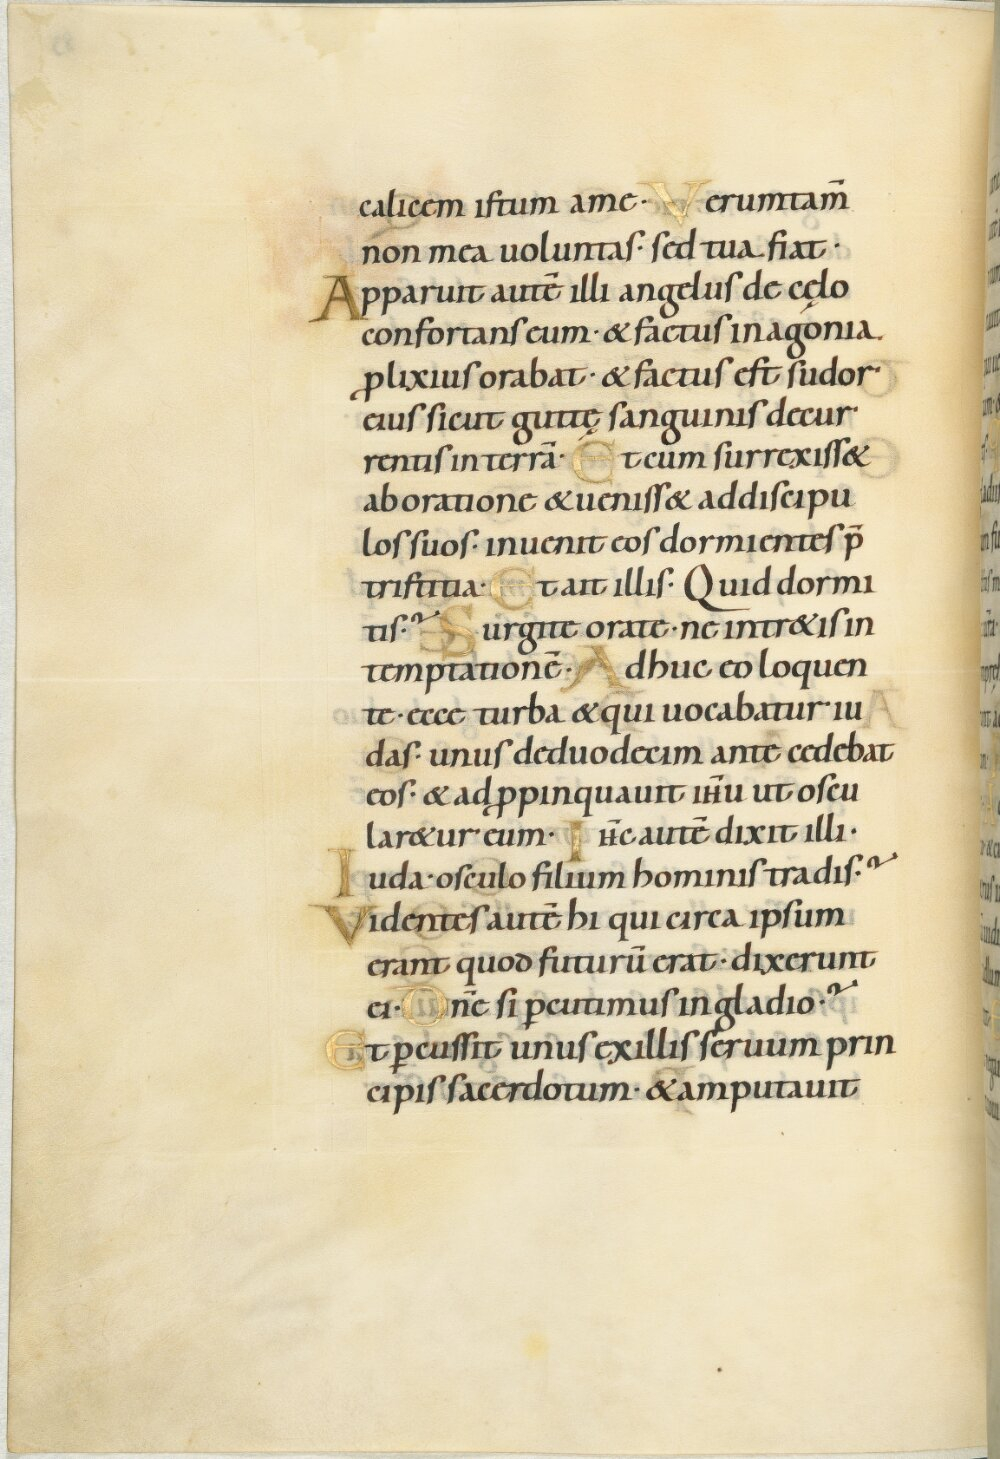 calicem istum a me· Verumtam̄
non mea voluntas· sed tua fiat·
Apparuit autē illi angelus de cęlo
confortans eum· & factus in agonia
ꝓlixius orabat· & factus est sudor
eius sicut guttę sanguinis decur
rentis in terrā· Et cum surrexiss&
ab oratione & ueniss& ad discipu
los suos· inuenit eos dormientes p̄
tristitia· Et ait illis· Quid dormi
tis? Surgite orate· ne intr&is in
temptationē· Adhuc eo loquen
te· ecce turba & qui uocabatur iu
das· unus de duodecim ante cedebat
eos· & adꝓpinquauit ih̄u ut oscu
lar&ur eum· Ih̄c autē dixit illi·
Iuda· osculo filium hominis tradis?
Videntes autē hi qui circa ipsum
erant quod futurū erat· dixerunt
ei· Dn̄e si ꝑcutimus in gladio?
Et ꝑcussit unus ex illis seruum prin
cipis sacerdotum· & amputauit